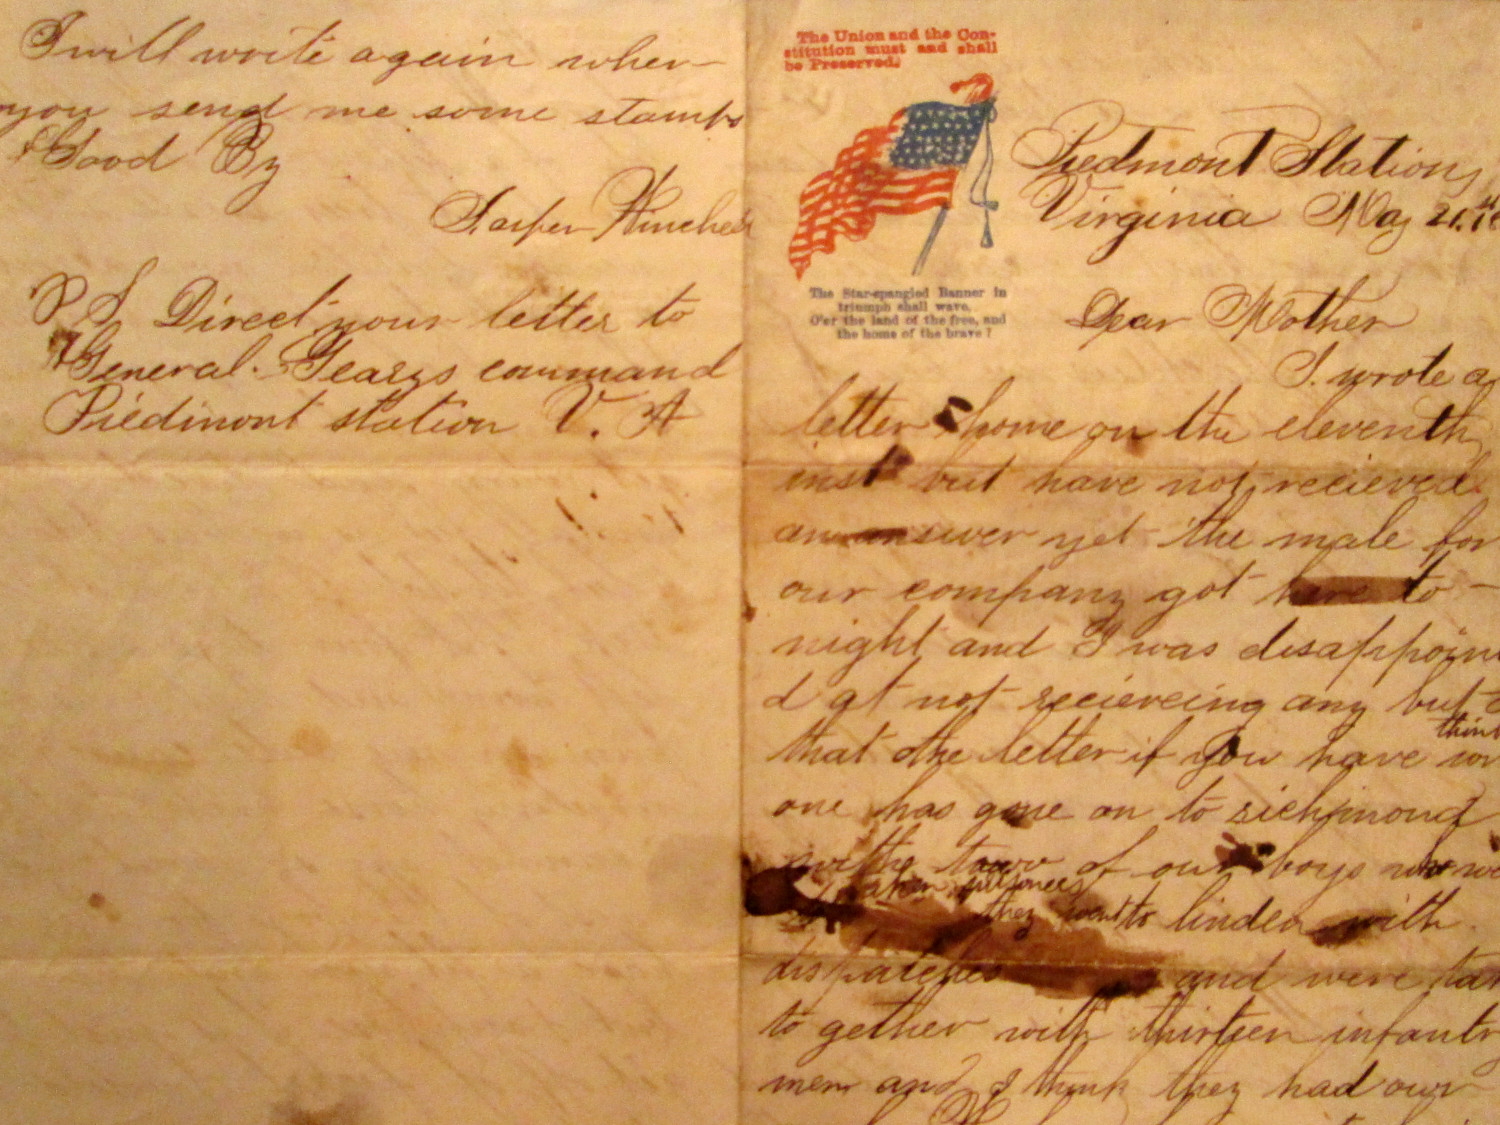 I will write again when
you send me some stamps
Good By
Jasper
P S Direct your letter to
General Gearys command
Piedimont station V. A
The Union and the Con-
stitution must and shall
be Preserved.
The Star-spangled Banner in
triumph shall wave,
O'er the land of the free, and
the home of the brave!
Piedmont Station,
Virginia May 21.st
Dear Mother
I. wrote a
letter home on the eleventh
inst but have not recieved
an answer yet the male for
our company got here to -
night and I was disappoint
d at not recieveing any but
think
that the letter if you have
one has gone on to richmond
with the two of our boys
taken prisoners
they went to linden with
dispatches and were tak
to gether with thirteen infantry
men and I think they had our